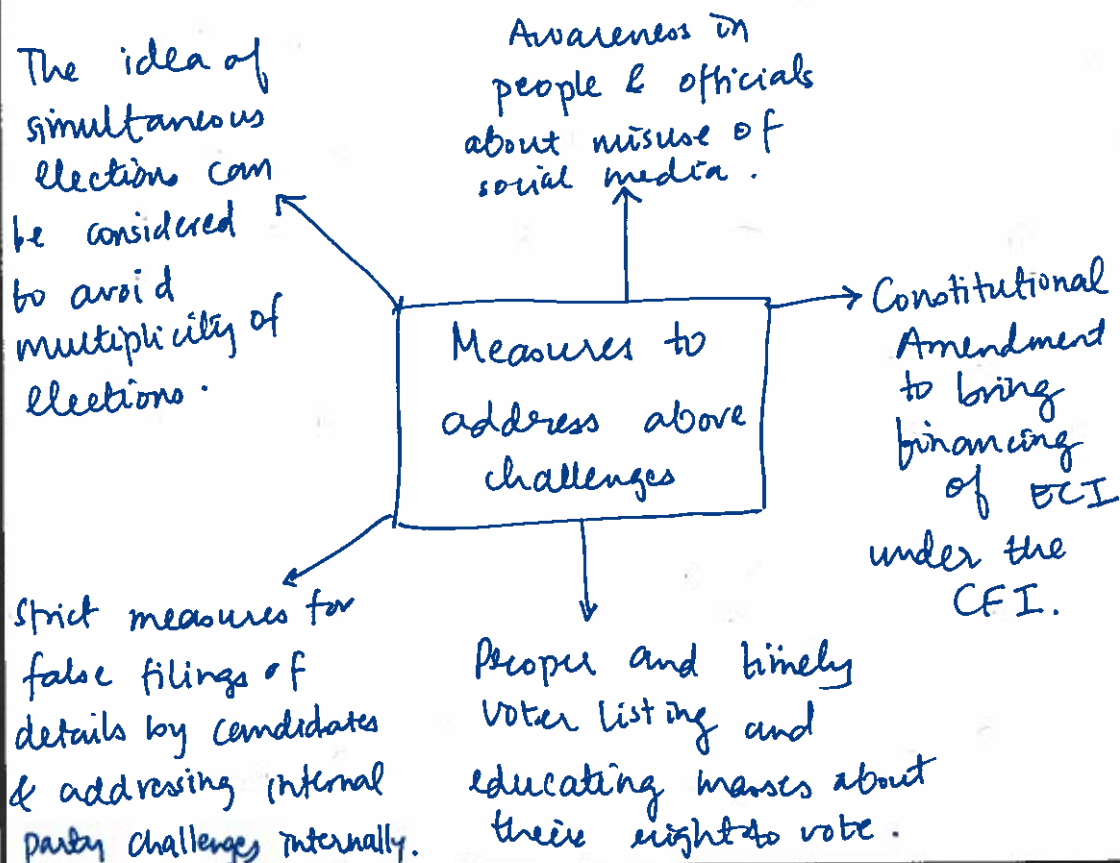 The idea of
simultaneous
elections can
be considered
to avoid
multiplicity of
elections.
Awareness in
people & officials
about misuse of
social media.
Constitutional
Amendment
to bring
financing
of ECI
under the
CFI.
Measures to
address above
challenges
Strict measures for
false filings of
details by candidates
& addressing internal
party challenges internally.
Proper and timely
voter listing and
educating masses about
their right to vote.